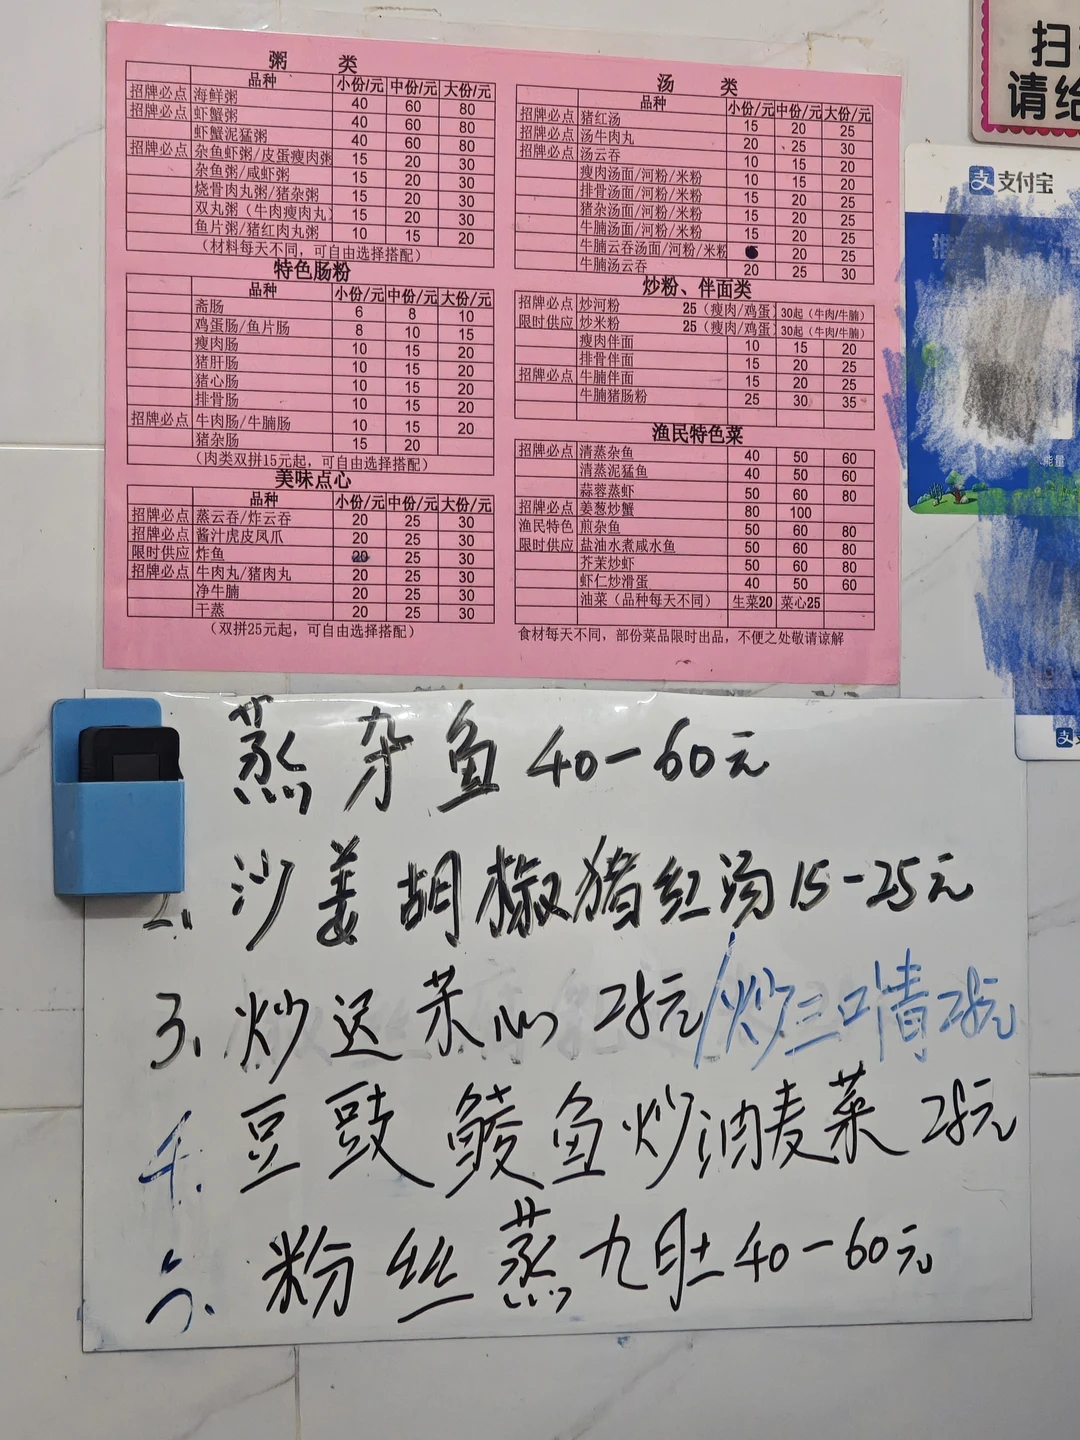 粥 类
品种 小份/元 中份/元 大份/元
招牌必点 海鲜粥 40 60 80
招牌必点 虾蟹粥 40 60 80
虾蟹泥猛粥 40 60 80
招牌必点 杂鱼虾粥/皮蛋瘦肉粥 15 20 30
杂鱼粥/咸虾粥 15 20 30
烧骨肉丸粥/猪杂粥 15 20 30
双丸粥（牛肉瘦肉丸） 15 20 30
鱼片粥/猪红肉丸粥 10 15 20
（材料每天不同，可自由选择搭配）
特色肠粉
品种 小份/元 中份/元 大份/元
斋肠 6 8 10
鸡蛋肠/鱼片肠 8 10 15
瘦肉肠 10 15 20
猪肝肠 10 15 20
猪心肠 10 15 20
排骨肠 10 15 20
招牌必点 牛肉肠/牛腩肠 10 15 20
猪杂肠 15 20
（肉类双拼15元起，可自由选择搭配）
美味点心
品种 小份/元 中份/元 大份/元
招牌必点 蒸云吞/炸云吞 20 25 30
招牌必点 酱汁虎皮凤爪 20 25 30
限时供应 炸鱼 20 25 30
招牌必点 牛肉丸/猪肉丸 20 25 30
净牛腩 20 25 30
干蒸 20 25 30
（双拼25元起，可自由选择搭配）
汤 类
品种 小份/元 中份/元 大份/元
招牌必点 猪红汤 15 20 25
招牌必点 汤牛肉丸 20 25 30
招牌必点 汤云吞 10 15 20
瘦肉汤面/河粉/米粉 10 15 20
排骨汤面/河粉/米粉 15 20 25
猪杂汤面/河粉/米粉 15 20 25
牛腩汤面/河粉/米粉 15 20 25
牛腩云吞汤面/河粉/米粉 20 25
牛腩汤云吞 20 25 30
炒粉、伴面类
招牌必点 炒河粉 25（瘦肉/鸡蛋） 30起（牛肉/牛腩）
限时供应 炒米粉 25（瘦肉/鸡蛋） 30起（牛肉/牛腩）
瘦肉伴面 10 15 20
排骨伴面 15 20 25
招牌必点 牛腩伴面 15 20 25
牛腩猪肠粉 25 30 35
渔民特色菜
招牌必点 清蒸杂鱼 40 50 60
清蒸泥猛鱼 40 50 60
蒜蓉蒸虾 50 60 80
招牌必点 姜葱炒蟹 80 100
渔民特色 煎杂鱼 50 60 80
限时供应 盐油水煮咸水鱼 50 60 80
芥茉炒虾 50 60 80
虾仁炒滑蛋 40 50 60
油菜（品种每天不同） 生菜20 菜心25
食材每天不同，部份菜品限时出品，不便之处敬请谅解
扫
请给
支付宝
能量
支
蒸杂鱼 40-60元
2、沙姜胡椒猪红汤 15-25元
3、炒迟菜心 28元/炒三口情28元
4、豆豉鲮鱼炒油麦菜 28元
5、粉丝蒸九肚 40-60元